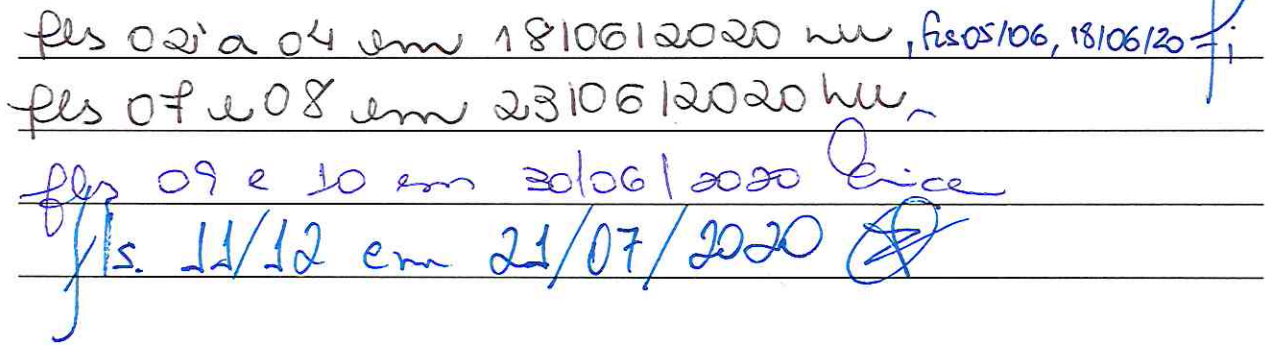 fls 02 a 04 em 18/06/2020 , fls 05/06, 18/06/20
fls 07 e 08 em 23/06/2020
fls 09 e 10 em 30/06/2020
fls. 11/12 em 21/07/2020